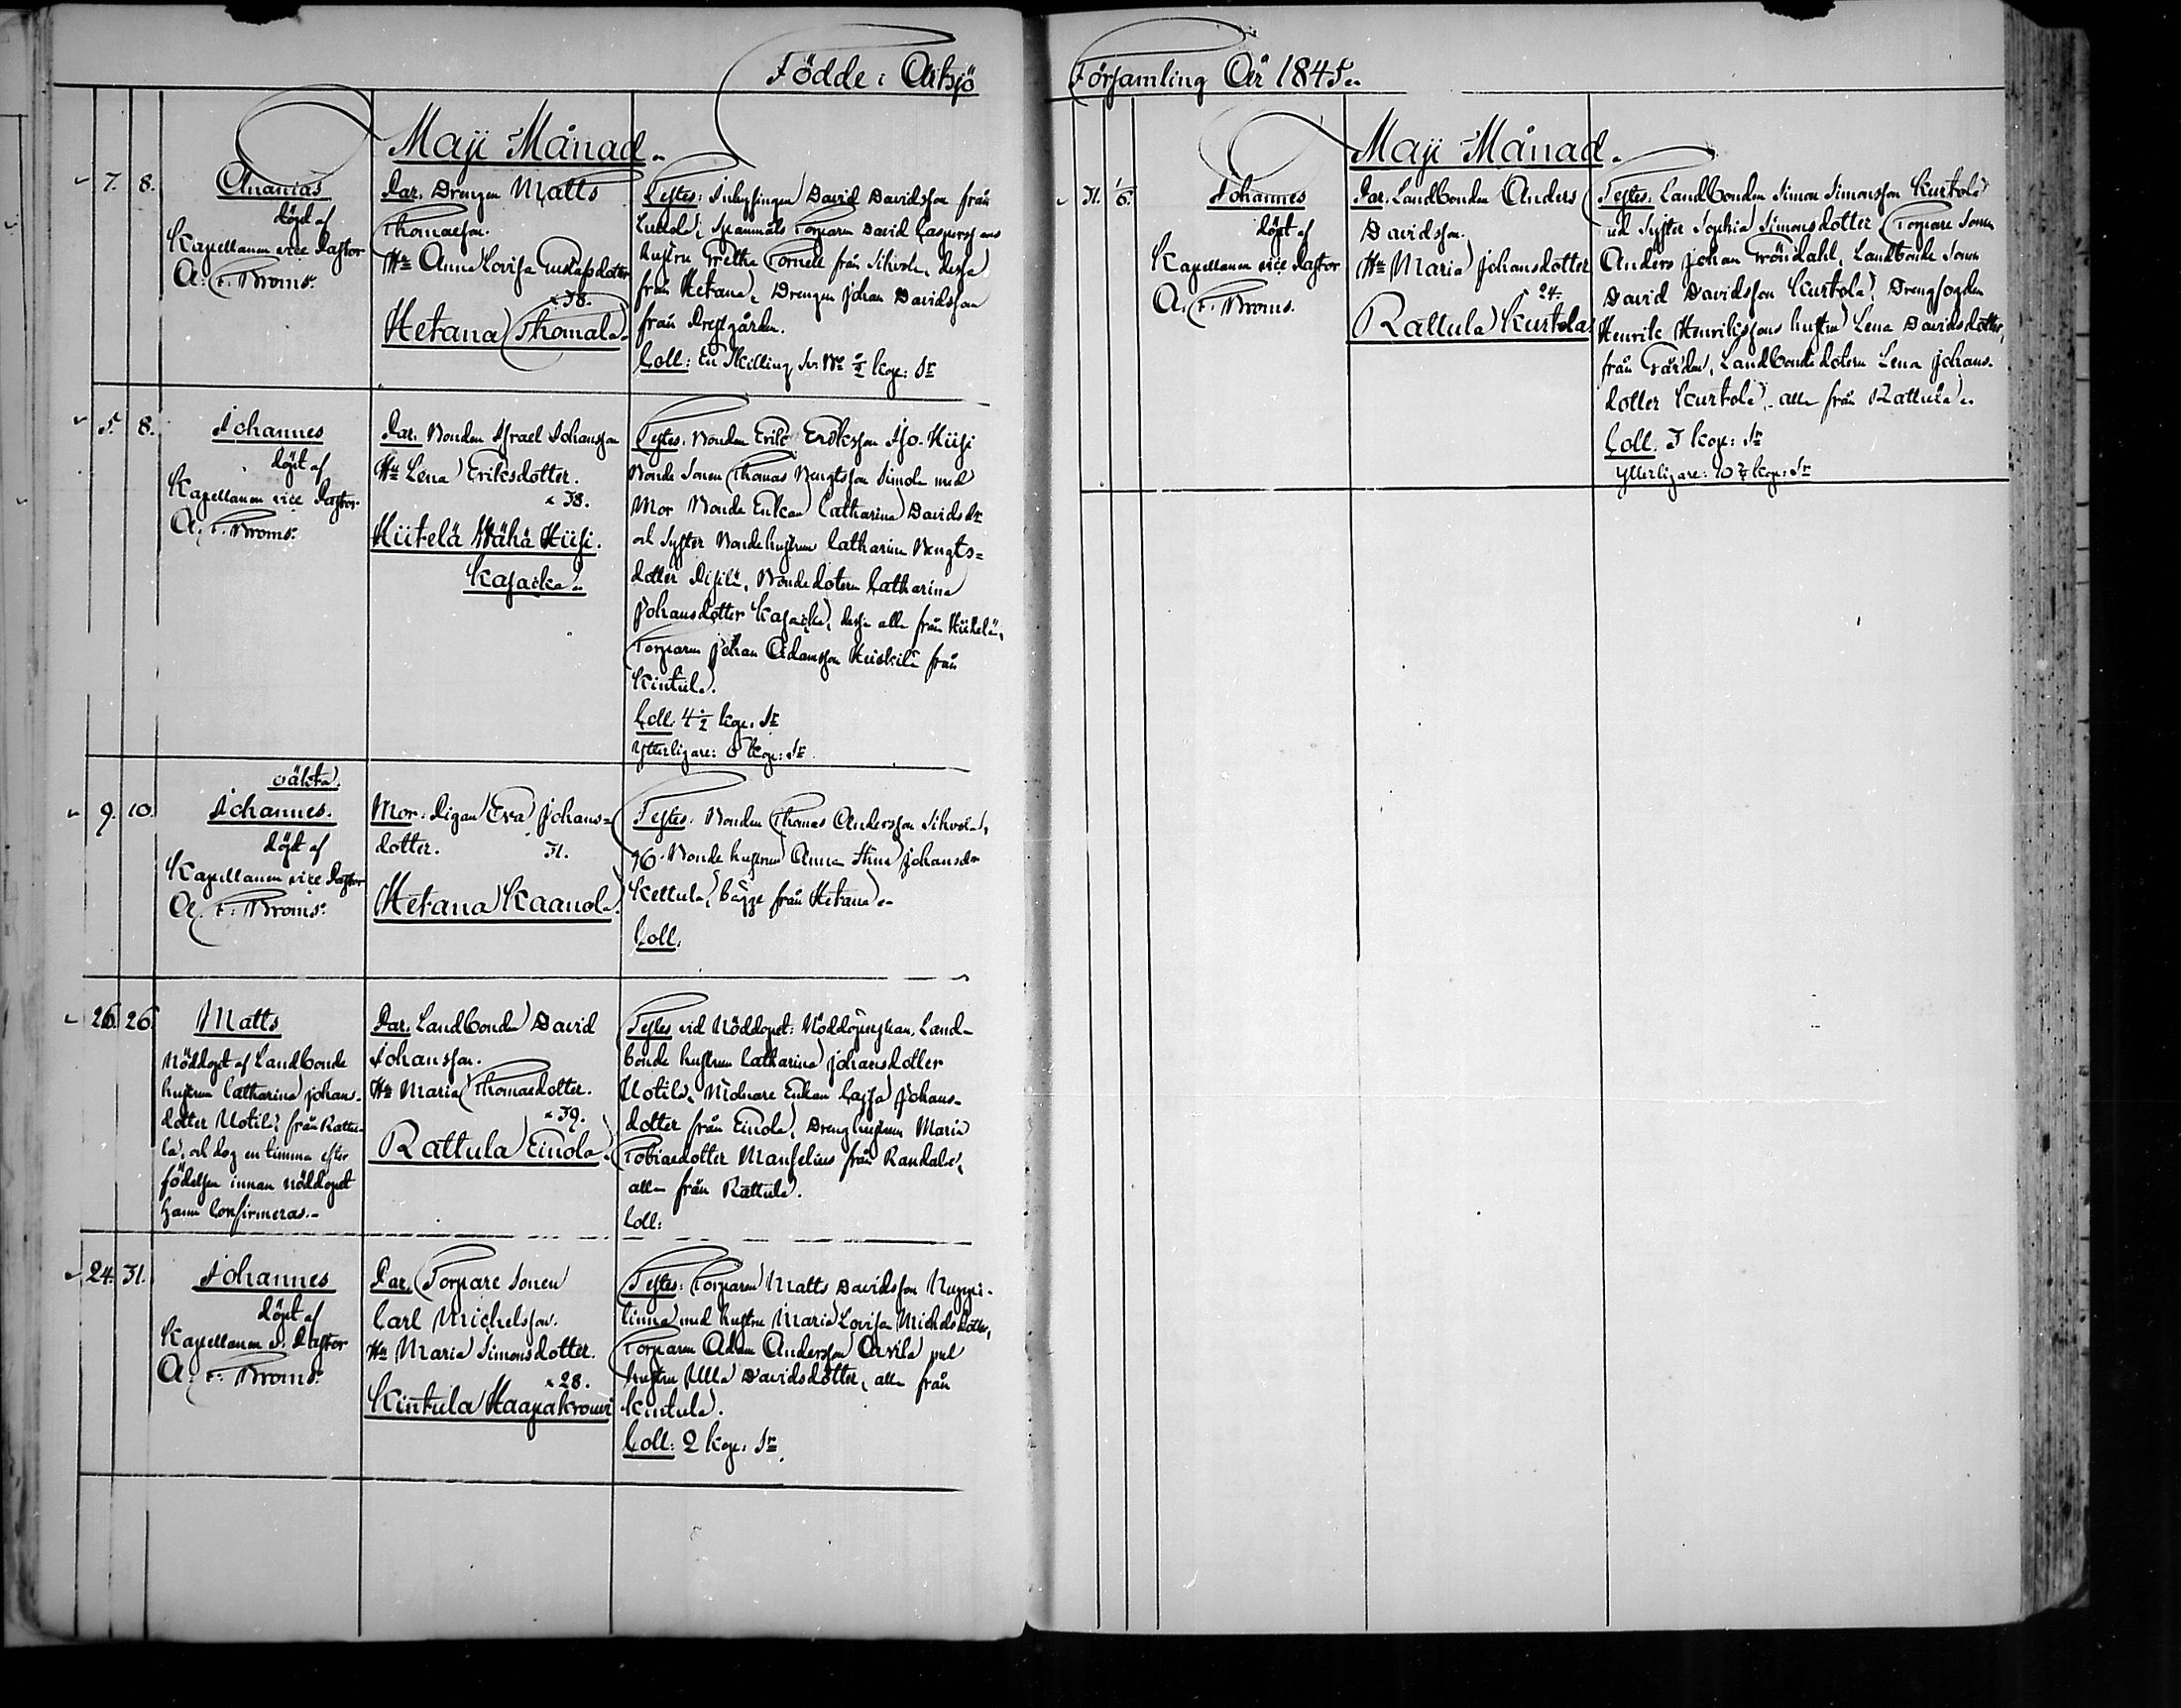 Födde i Artsjö
Maji Månad.
7. 8. Ananias
döpt af
Kapellanen vice Pastor
A. F. Broms.
Par. Drengen Matts
Thomasson.
Hu Anna Lovisa Gustafsdotter
38.
Hetana Thomala.
Testes: Inhysingen David Davidsson från
Spannmåls Torparen David Caspersson
hustru Gretha Tornell från Sihvola, dessa
från Hetana, Drengen Johan Davidsson
från Prestgården.
Coll: En Skilling kop: Sr
5. 8. Johannes
döpt af
Kapellanen vice Pastor
A. F. Broms.
Par. Bonden Israel Johansson
Hu Lena Eriksdotter.
38.
Hiitelä Wähä Hiisi.
Kasacka.
Testes: Bonden Erik Eriksson Iso-Hiisi
Bonde Sonen Thomas Bengtsson Simola med
Mor Bonde Enkan Catharina Davidsdr
och Syster Bondehustrun Catharina Bengts=
dotter Bondedotern Catharina
Johansdotter Kasacka, dessa alla från Hiitelä,
Torparen Johan Adamsson Heiskilä från
Kintula.
Coll: 4½ kop. Sr
Ytterligare: 6 kop: Sr
oäkta.
9. 10. Johannes.
döpt af
Kapellanen vice Pastor
A. F. Broms.
Mor. Pigan Eva Johans=
dotter. 31.
Hetana Kaanola.
Testes: Bonden Thomas Andersson Sihvola,
Bonde hustrun Anna Stina Johansdr
Kettula, bägge från Hetana.
Coll.
26. 26. Matts
Nöddöpt af Landbonde
hustrun Catharina Johans-
dotter Uotila från Rattu-
la, och dog en timma efter
födelsen innan nöddopet
hann Confirmeras.-
Par. Landbonden David
Johansson.
Hu Maria Thomasdotter.
39.
Rattula Einola.
Testes vid Nöddopet: Nöddöperskan, Land-
bonde hustrun Catharina Johansdotter
Uotila, Mölnare Enkan Cajsa Johans-
dotter från Einola, Dreng hustrun Maria
Tobiasdotter Manselius från Randala,
alla från Rattula.
Coll:
24. 31. Johannes
döpt af
Kapellanen v. Pastor
A. F. Broms.
Par. Torpare Sonen
Carl Michelsson.
Hu Maria Simonsdotter.
28.
Kintula Haapakrouvi
Testes: Torparen Matts Davidsson Nuppi-
linna med hustru Maria Lovisa Michelsdotter,
Torparen Adam Andersson Arvila med
hustru Ulla Davidsdotter, alla från
Kintula.
Coll: 2 kop. Sr
Församling År 1845.
Maji Månad.
31. 1/6. Johannes
döpt af
Kapellanen vice Pastor
A. F. Broms.
Par. Landbonden Anders
Davidsson.
Hu Maria Johansdotter
24.
Rattula Kurtola
Testes: Landbonden Simon Simonsson Kurtola
med Syster Sophia Simonsdotter Torpare Sonen
Anders Johan Gröndahl, Landbonde Sonen
David Davidsson Kurtola, Drengfogden
Henrik Henrikssons hustru Lena Davidsdotter,
från Gården, Landbonde dotern Lena Johans-
dotter Kurtola, alla från Rattula.
Coll. 3 kop: Sr
Ytterligare: kop: Sr